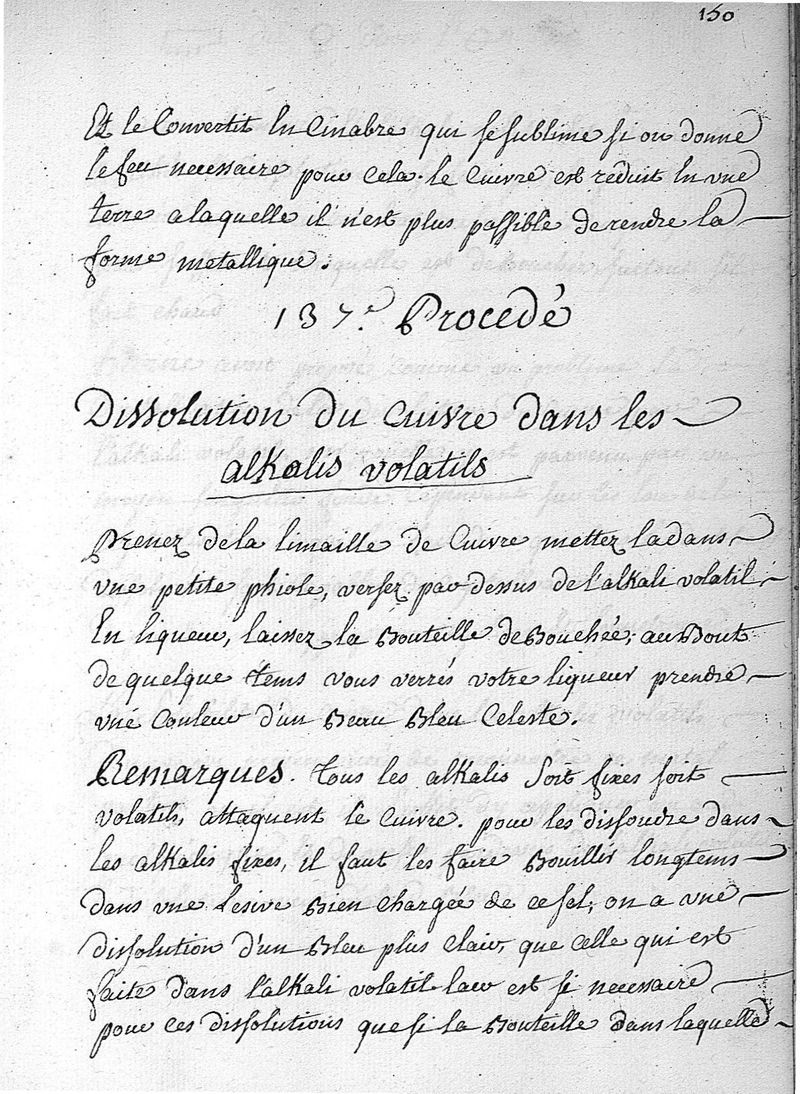 150
Et le Convertit En Cinabre qui se sublime si on donne
le feu necessaire pour cela. le Cuivre est réduit En vne
terre a laquelle il n'est plus possible de rendre la
forme metallique.
137.e Procedé
Dissolution du Cuivre dans les
alkalis volatils
Prenez dela limaille de Cuivre mettez la dans
vne petite phiole, versez par dessus de l'alkali volatil
En liqueur, laissez la Bouteille deBouchée, au Bout
de quelque tems vous verrés votre liqueur prendre
vne Couleur d'un Beau Bleu Celeste.
Remarques. Tous les alkalis soit fixes soit
volatils, attaquent le Cuivre. pour les dissoudre dans
les alkalis fixes, il faut les faire Bouillir longtems
dans vne Lesive Bien chargée de ce sel, on a vne
dissolution d'un Bleu plus clair, que celle qui est
faite dans l'alkali volatil. law est si necessaire
pour ces dissolutions que si la Bouteille dans laquelle